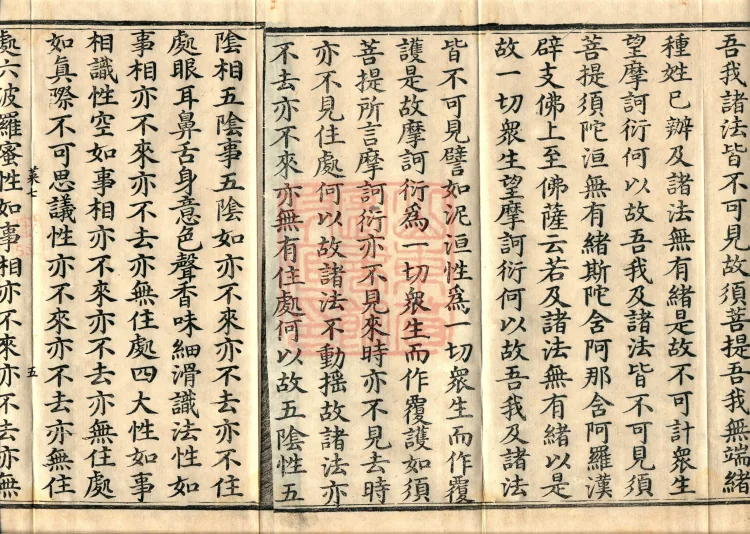 吾我諸法皆不可見故須菩提吾我無端緒
種姓已辦及諸法無有緒是故不可計衆生
望摩訶衍何以故吾我及諸法皆不可見須
菩提須陀洹無有緒斯陀含阿那含阿羅漢
辟支佛上至佛薩云若及諸法無有緒以是
故一切衆生望摩訶衍何以故吾我及諸法
皆不可見譬如泥洹性爲一切衆生而作覆
護是故摩訶衍爲一切衆生而作覆護如須
菩提所言摩訶衍亦不見來時亦不見去時
亦不見住處何以故諸法不動搖故諸法亦
不去亦不來亦無有住處何以故五陰性五
陰相五陰事五陰如亦不來亦不去亦不住
處眼耳鼻舌身意色聲香味細滑識法性如
事相亦不來亦不去亦無住處四大性如事
相識性空如事相亦不來亦不去亦無住處
如眞際不可思議性亦不來亦不去亦無住
菜七 五
處六波羅蜜性如事相亦不來亦不去亦無